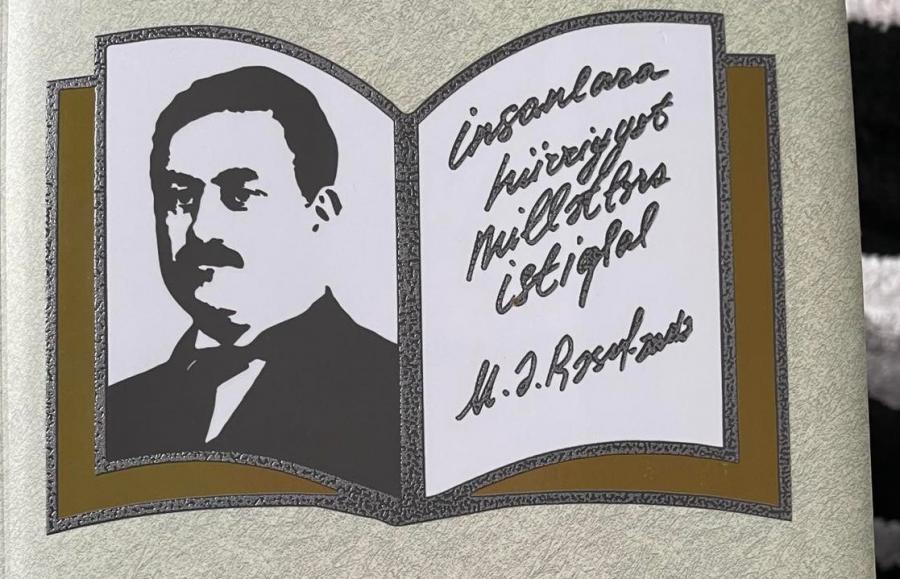 İnsanlara
hürriyyət
Millətlərə
istiqlal
M. Ə. Rəsulzadə